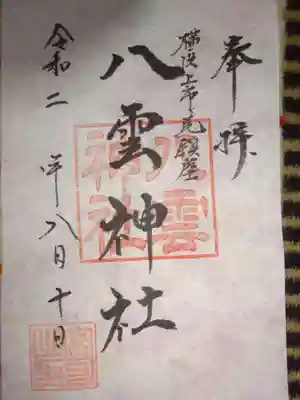 奉拝
横浜上市ヶ尾鎮座
八雲神社
令和二年八月十日
八雲
神社